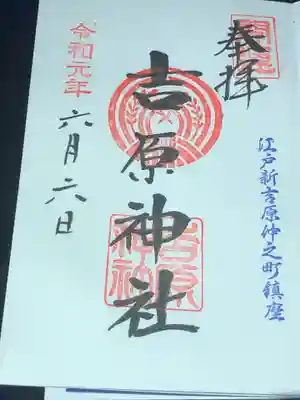 奉拝
江戸新吉原仲之町鎮座
吉原神社
吉原
神社
令和元年
六月六日